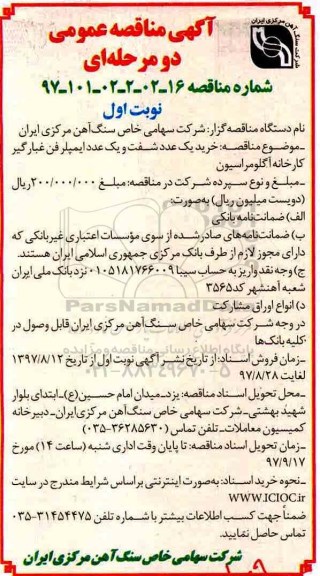 آگهی مناقصه عمومی
دو مرحله‌ای
شرکت سنگ آهن مرکزی ایران
شماره مناقصه ۱۶-۰۲-۲-۰۲-۱۰۱-۹۷
نوبت اول
نام دستگاه مناقصه‌گزار: شرکت سهامی خاص سنگ‌آهن مرکزی ایران
-موضوع مناقصه: خرید یک عدد شفت و یک عدد ایمپلر فن غبارگیر
کارخانه آگلومراسیون
-مبلغ و نوع سپرده شرکت در مناقصه: مبلغ ۲۰۰/۰۰۰/۰۰۰ریال
(دویست میلیون ریال) به‌صورت:
الف) ضمانت‌نامه بانکی
ب) ضمانت‌نامه‌های صادر شده از سوی مؤسسات اعتباری غیربانکی که
دارای مجوز لازم از طرف بانک مرکزی جمهوری اسلامی ایران هستند.
ج) وجه نقد واریز به حساب سیبا ۰۱۰۵۱۸۱۷۶۶۰۰۹ نزد بانک ملی ایران
شعبه آهنشهر کد۳۵۶۵
د) انواع اوراق مشارکت
در وجه شرکت سهامی خاص سنگ‌آهن مرکزی ایران قابل وصول در
کلیه بانک‌ها
-زمان فروش اسناد: از تاریخ نشر آگهی نوبت اول از تاریخ ۱۳۹۷/۸/۱۲
لغایت ۹۷/۸/۲۸
-محل تحویل اسناد مناقصه: یزد-میدان امام حسین(ع)-ابتدای بلوار
شهید بهشتی-شرکت سهامی خاص سنگ‌آهن مرکزی ایران-دبیرخانه
کمیسیون معاملات-تلفن تماس (۳۶۲۸۵۶۳۰-۰۳۵)
-زمان تحویل اسناد مناقصه: تا پایان وقت اداری شنبه (ساعت ۱۴) مورخ
۹۷/۹/۱۷
-نحوه خرید اسناد: به‌صورت اینترنتی براساس شرایط مندرج در سایت
WWW.ICIOC.ir
ضمناً جهت کسب اطلاعات بیشتر با شماره تلفن ۳۱۴۵۴۴۷۵-۰۳۵
تماس حاصل نمایید.
شرکت سهامی خاص سنگ‌آهن مرکزی ایران
ParsNamadData
۰۲۱-۸۸۳۴۹۶۷۰-۵